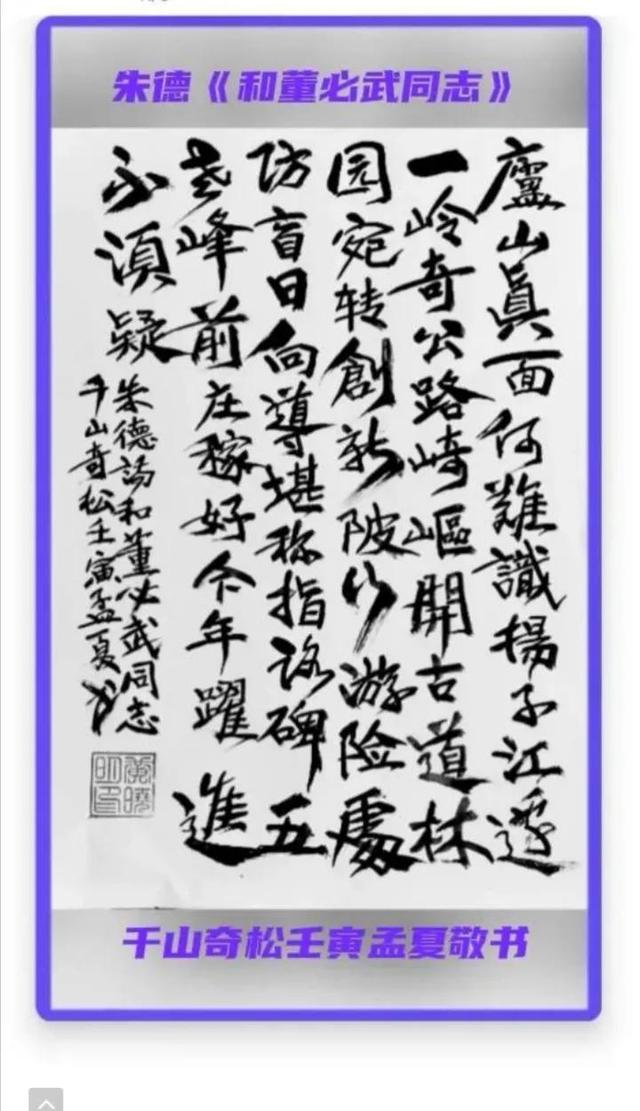 朱德《和董必武同志》
廬山眞面何難識揚子江邊
一岭奇公路崎嶇開古道林
园宛转創新陂行游险處
防盲目向導堪称指路碑五
老峰前庄稼好今年躍進
不須疑
朱德詩和董必武同志
千山奇松壬寅孟夏书
千山奇松壬寅孟夏敬书